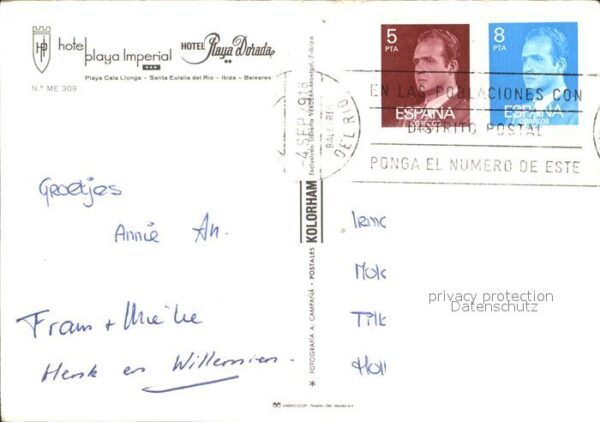 hotel
playa Imperial
HOTEL Playa Dorada
Playa Cala Llonga - Santa Eulalia del Rio - Ibiza - Baleares
N.º ME 309
5
PTA
ESPAÑA
CORREOS
8
PTA
ESPAÑA
CORREOS
4 SEP
BALEARES
DEL RIO
EN LAS POBLACIONES CON
DISTRITO POSTAL
PONGA EL NUMERO DE ESTE
Groetjes
Annie An.
Frans + Mieke
Henk en Willemien.
* FOTOGRAFIA A. CAMPAÑÁ - POSTALES KOLORHAM
Irmc
Mol
Till
Holl
privacy protection
Datenschutz